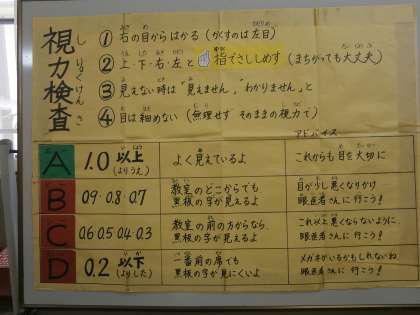 視力検査
しりょくけんさ
① 右の目からはかる (かくすのは左目)
② 上・下・右・左と 指でさししめす (まちがっても大丈夫)
③ 見えない時は "見えません" "わかりません" と
④ 目は細めない (無理せず そのままの視力で)
アドバイス
A 1.0 以上 (よりうえ) よく見えているよ これからも目を大切に
B 0.9・0.8・0.7 教室のどこからでも 黒板の字が見えるよ 目が少し悪くなりかけ 眼医者さんに行こう!
C 0.6 0.5 0.4 0.3 教室の前の方からなら、黒板の字が見えるよ これ以上悪くならないように、眼医者さんに行こう!
D 0.2 以下 (よりした) 一番前の席でも 黒板の字が見にくいよ メガネがいるかもしれないね、眼医者さんに行こう!